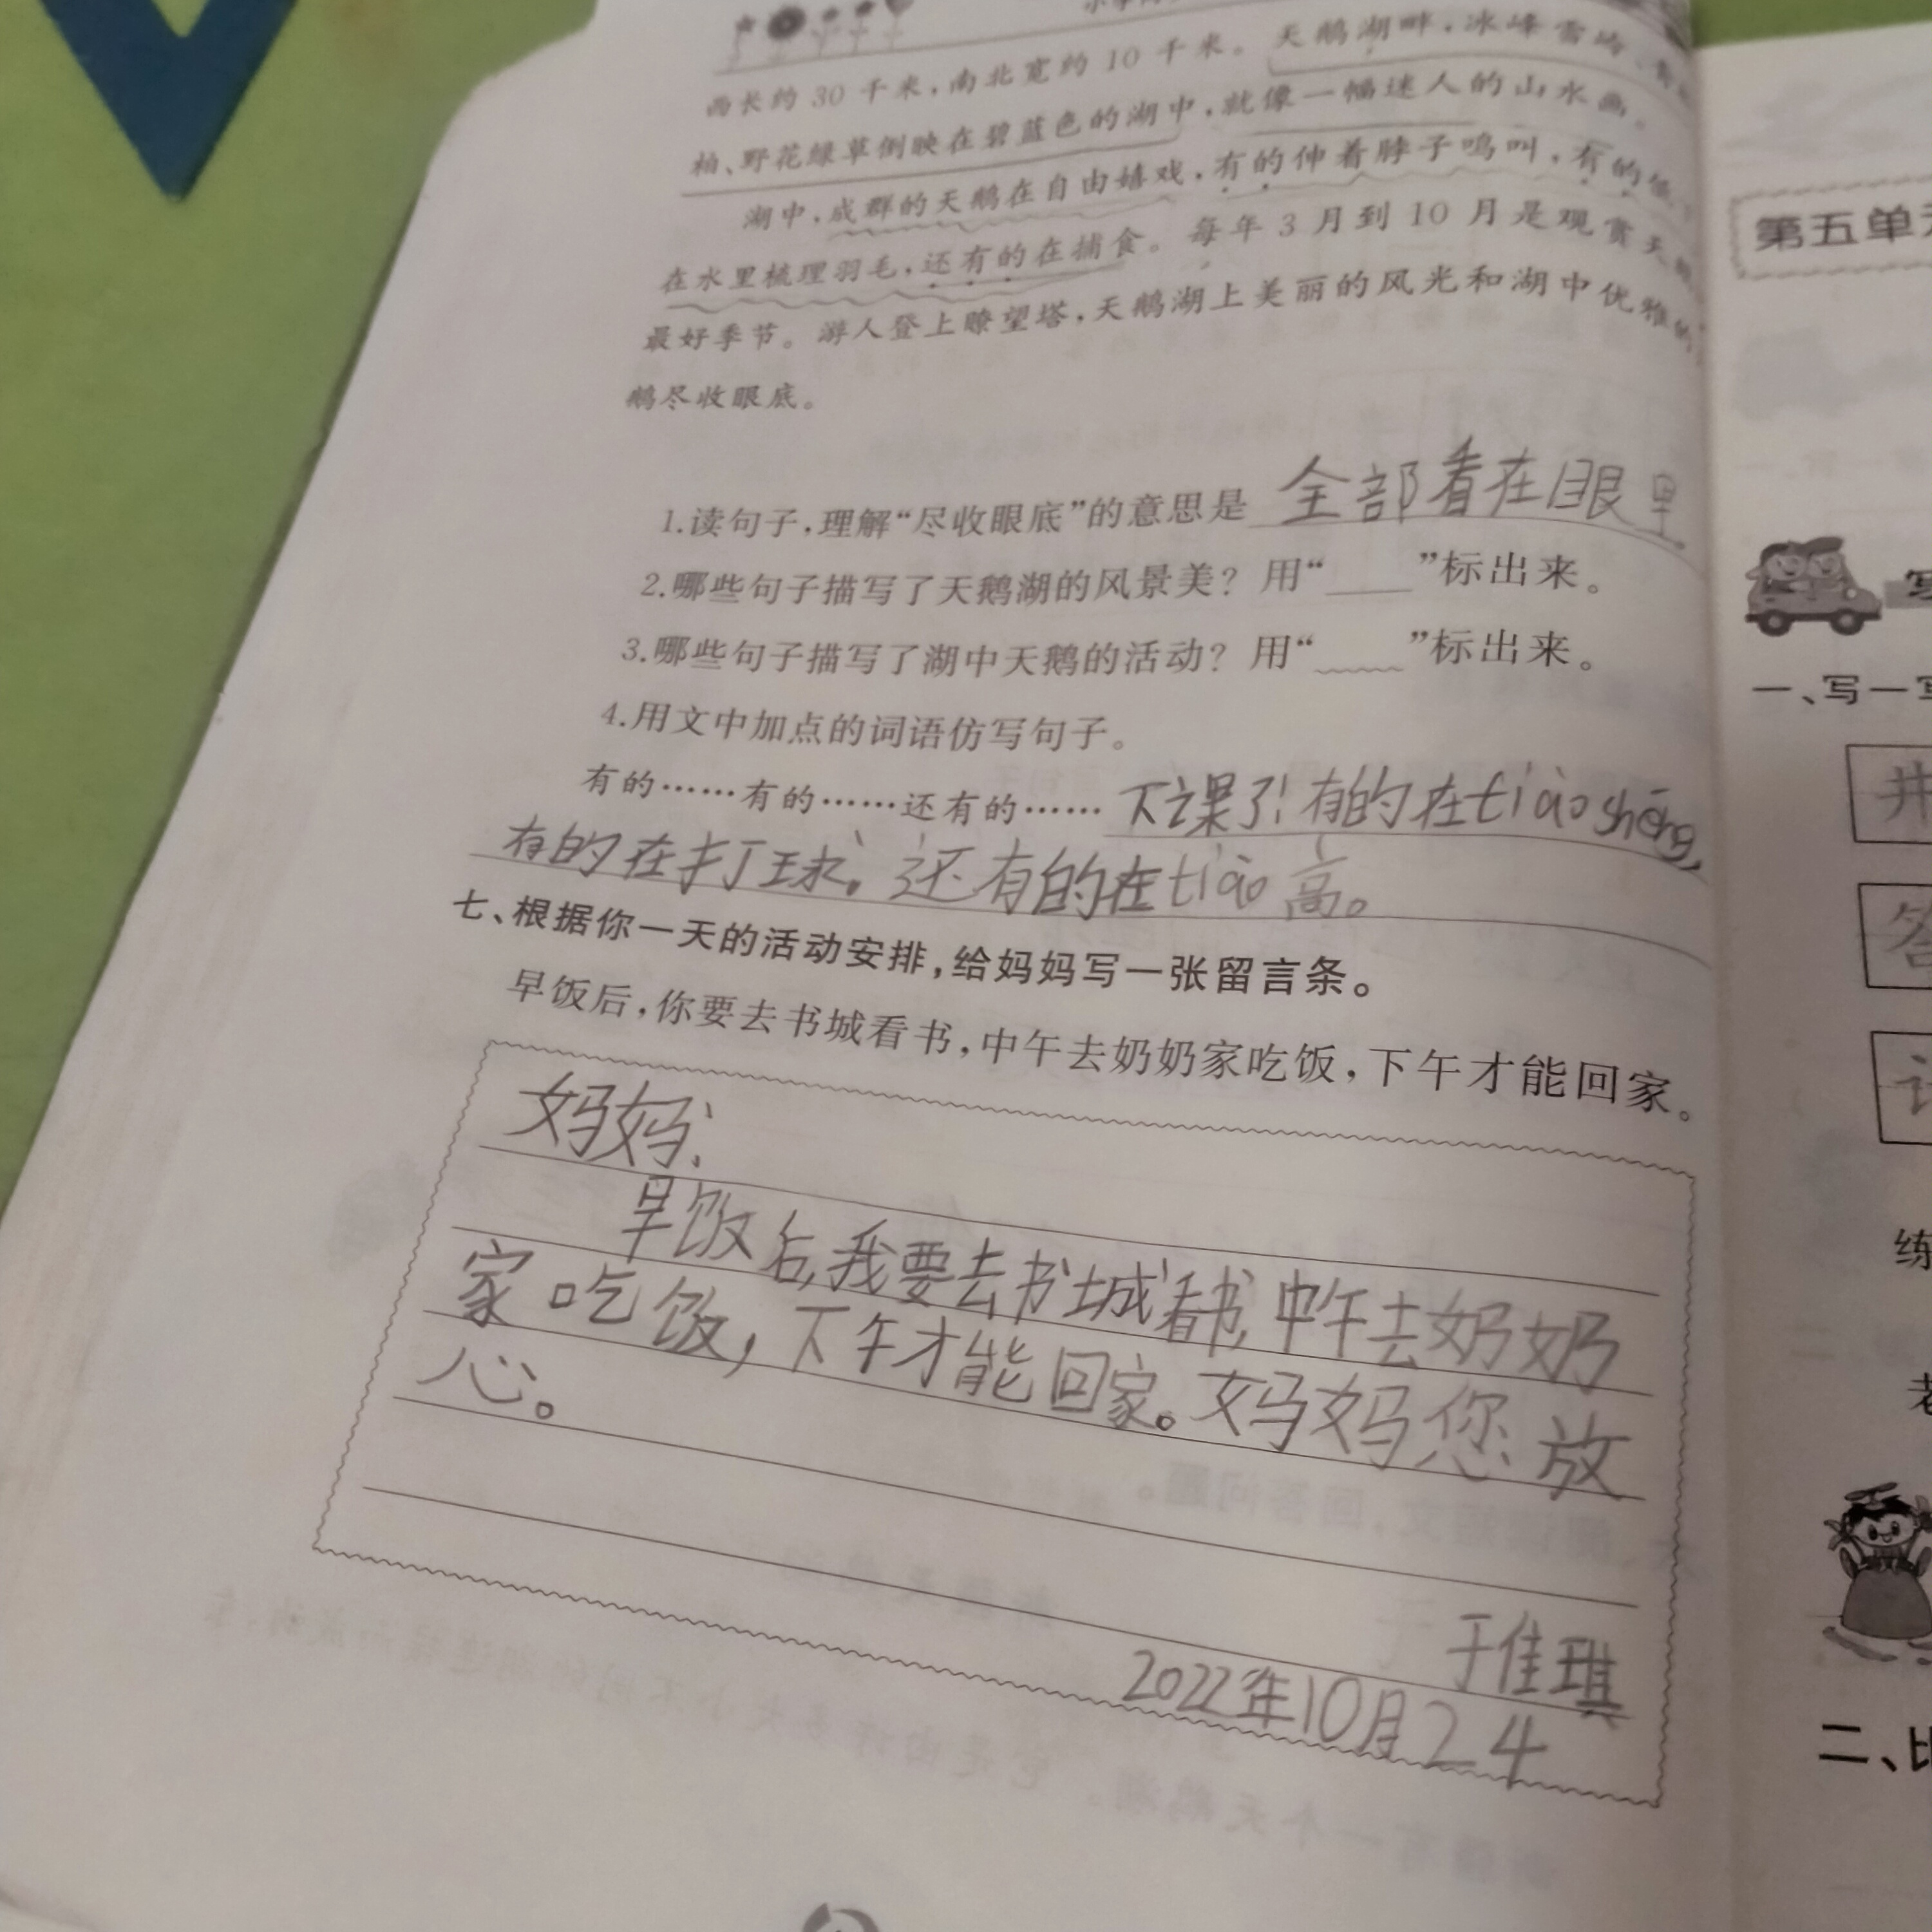 西长约 30 千米，南北宽约 10 千米。天鹅湖畔，冰峰雪岭、青
柏、野花绿草倒映在碧蓝色的湖中，就像一幅迷人的山水画。
湖中，成群的天鹅在自由嬉戏，有的伸着脖子鸣叫，有的
在水里梳理羽毛，还有的在捕食。每年 3 月到 10 月是观赏天
最好季节。游人登上瞭望塔，天鹅湖上美丽的风光和湖中优雅的
鹅尽收眼底。
1.读句子，理解“尽收眼底”的意思是 全部看在眼里。
2.哪些句子描写了天鹅湖的风景美？用“____”标出来。
3.哪些句子描写了湖中天鹅的活动？用“﹏﹏”标出来。
4.用文中加点的词语仿写句子。
有的……有的……还有的……下课了！有的在tiào shéng，
有的在打球，还有的在tiào高。
七、根据你一天的活动安排，给妈妈写一张留言条。
早饭后，你要去书城看书，中午去奶奶家吃饭，下午才能回家。
妈妈：
早饭后，我要去书城看书，中午去奶奶
家吃饭，下午才能回家。妈妈您放
心。
于佳琪
2022年10月24
第五单
写
一、写一写
井
答
练
老
二、比